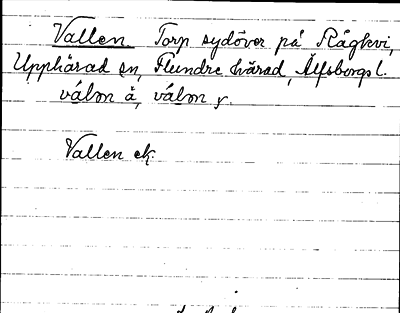 Vallen. Torp sydöver på Rågkvi,
Upphärad sn, Flundre härad, Älfsborgs l.
válǝn å, válǝn y.
Vallen ek.